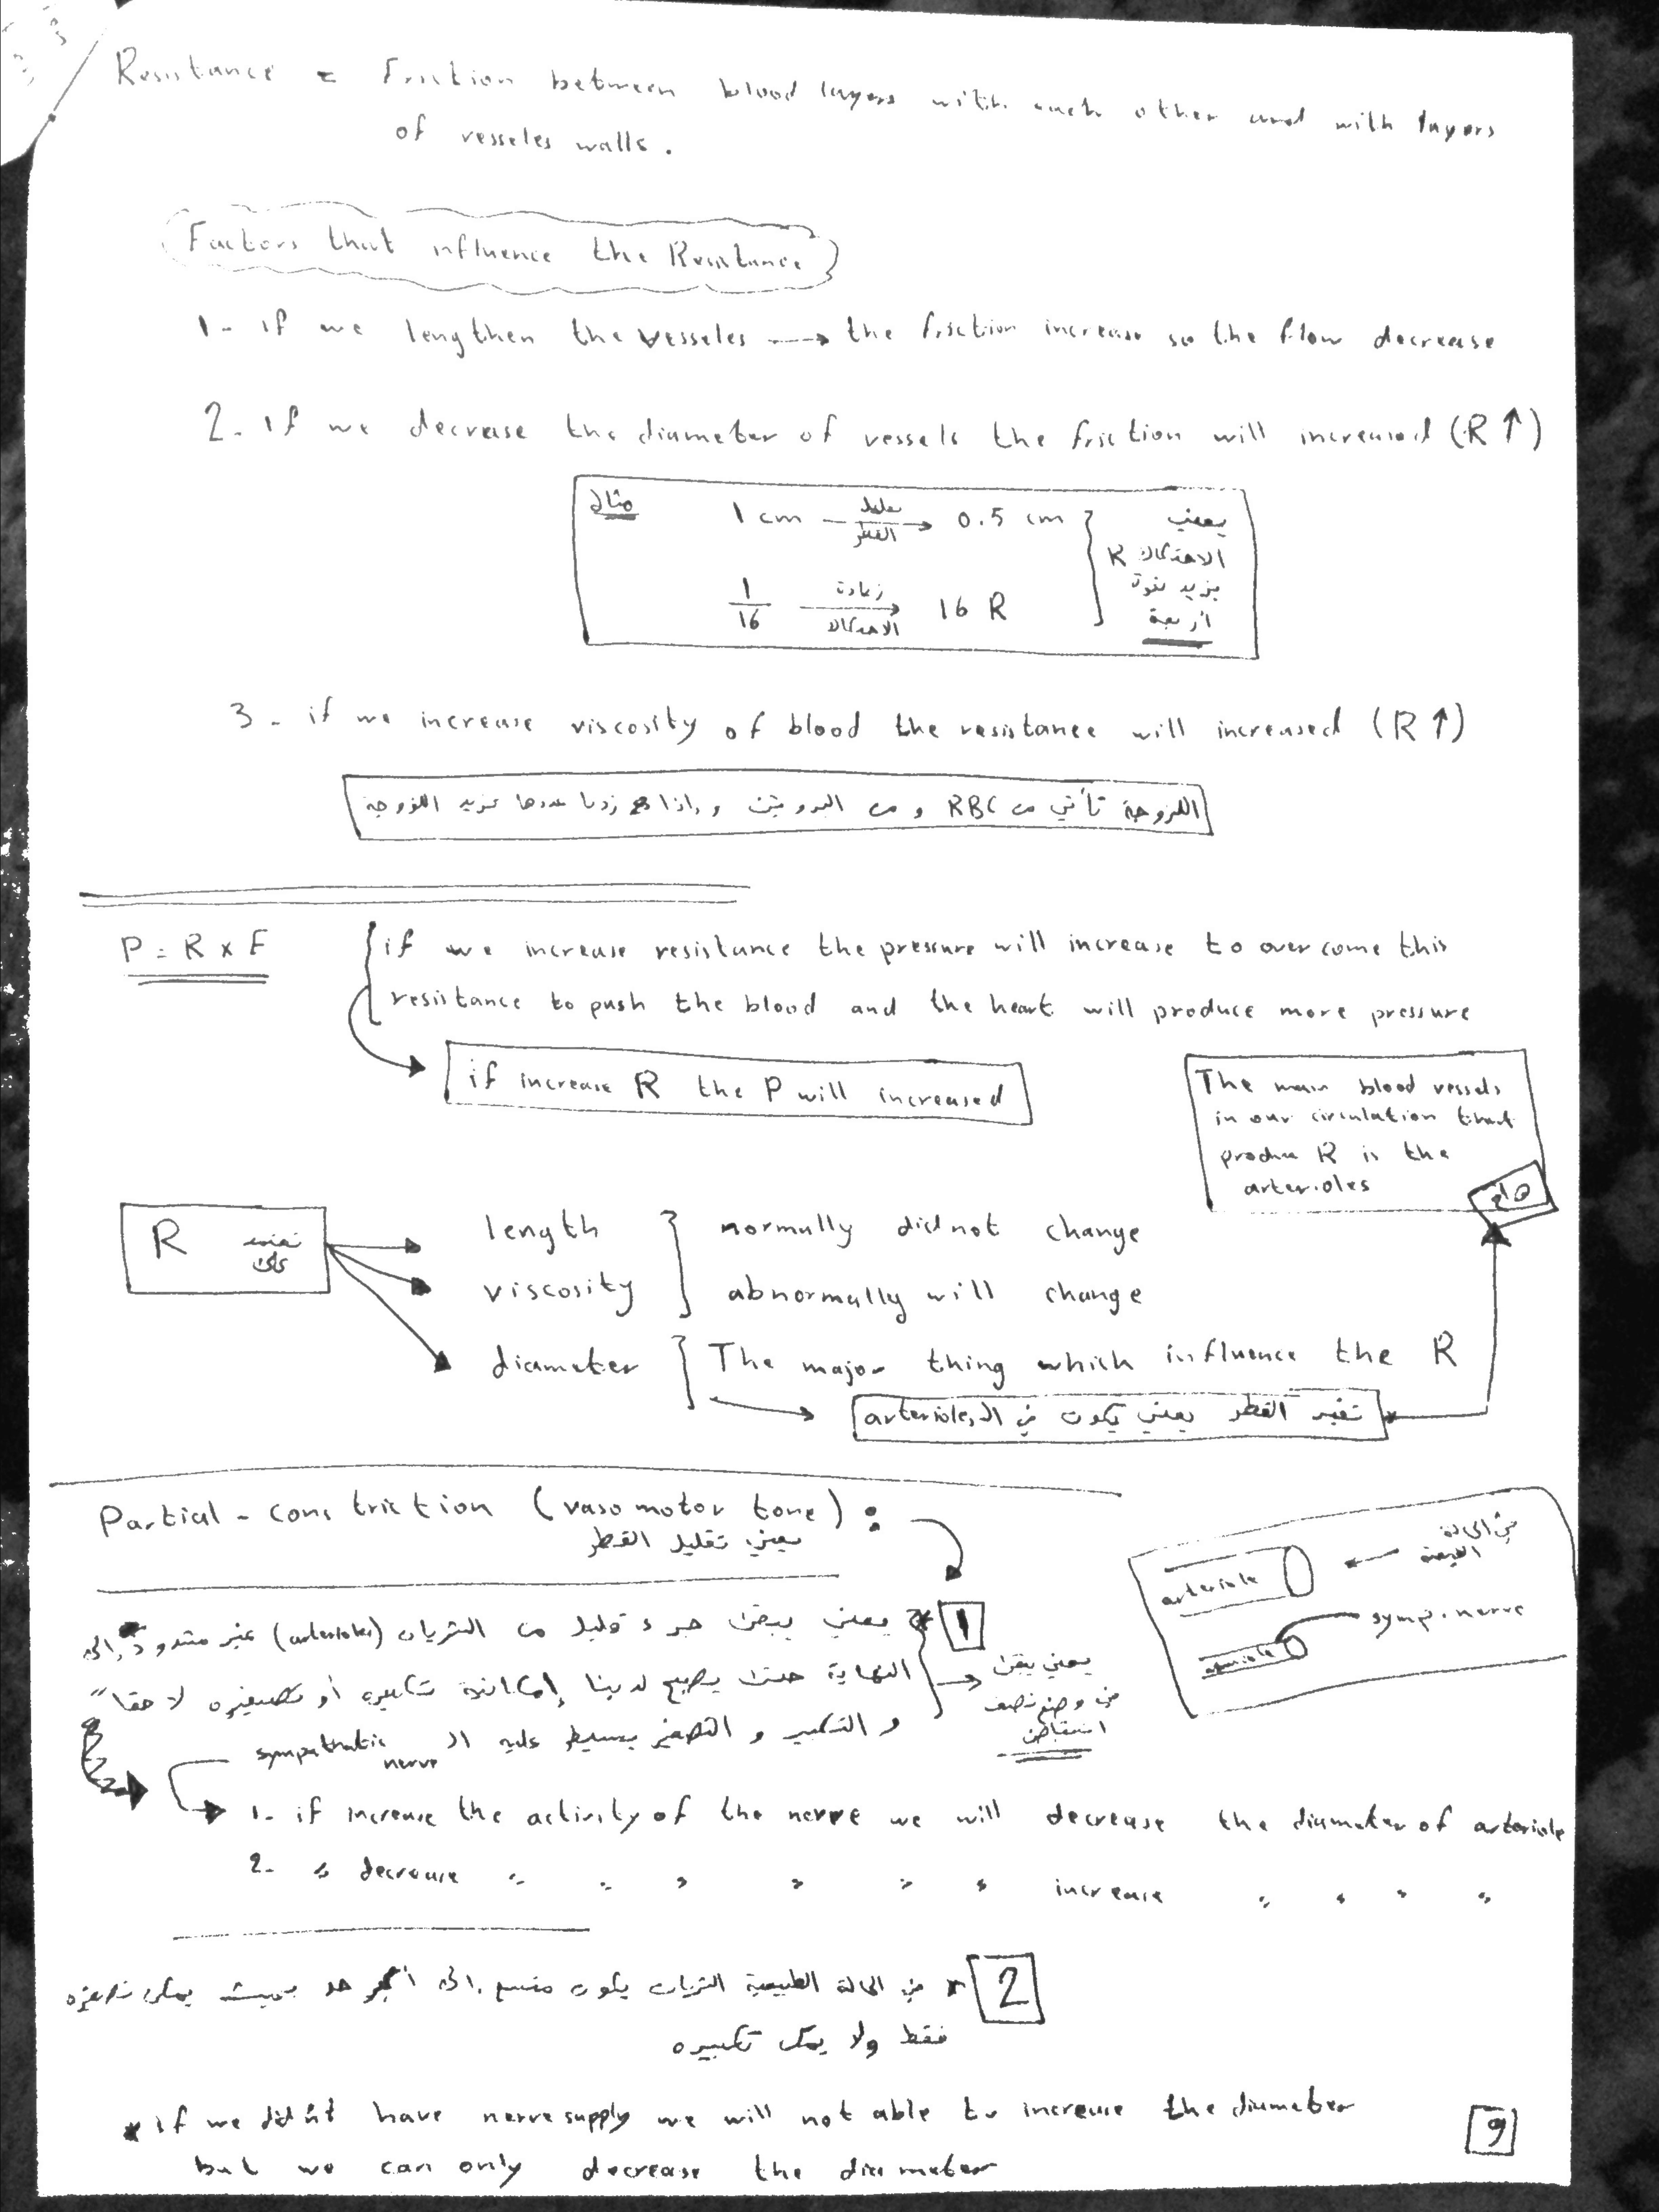 Resistance = Friction between blood layers with each other and with layers
of vesseles walls.
Factors that influence the Resistance
1- if we lengthen the vesseles → the friction increase so the flow decrease
2- if we decrase the diameter of vessels the friction will increased (R ↑)
مثال
1 cm تقليل القطر → 0.5 cm
1/16 زيادة الاحتكاك → 16 R
يعني
الاحتكاك R
يزيد بقوة
أربعة
3- if we increase viscosity of blood the resistance will increased (R ↑)
اللزوجة تأتي من RBC و من البروتين و إذا زدنا عددها تزيد اللزوجة
P = R x F
if we increase resistance the pressure will increase to over come this
resistance to push the blood and the heart will produce more pressure
if increase R the P will increased
The main blood vessels
in our circulation that
produce R is the
arterioles
هام
R تعتمد على
length
viscosity
normally did not change
abnormally will change
diameter
The major thing which influence the R
تغير القطر يعني يكون في الـ arterioles
Partial - constriction (vasomotor tone) :
يعني تقليل القطر
في الحالة
الطبيعية
arteriole
symp. nerve
arteriole
1
* يعني يبقى جزء قليل من الشريان (arterioles) غير مشدود إلى
النهاية حتى يصبح لدينا إمكانية تكبيره أو تصغيره لاحقا"
و التكبير و التصغير يسيطر عليه الـ sympathatic nerve
يعني يبقى
في وضع نصف
انقباض
1- if increase the activity of the nerve we will decrease the diameter of arteriole
2- " decrease " " " " " " increase " " " "
2
* في الحالة الطبيعية الشريان يكون متسع إلى أكبر حد بحيث يمكن تصغيره
فقط ولا يمكن تكبيره
* if we didn't have nerve supply we will not able to increase the diameter
but we can only decrease the diameter
9